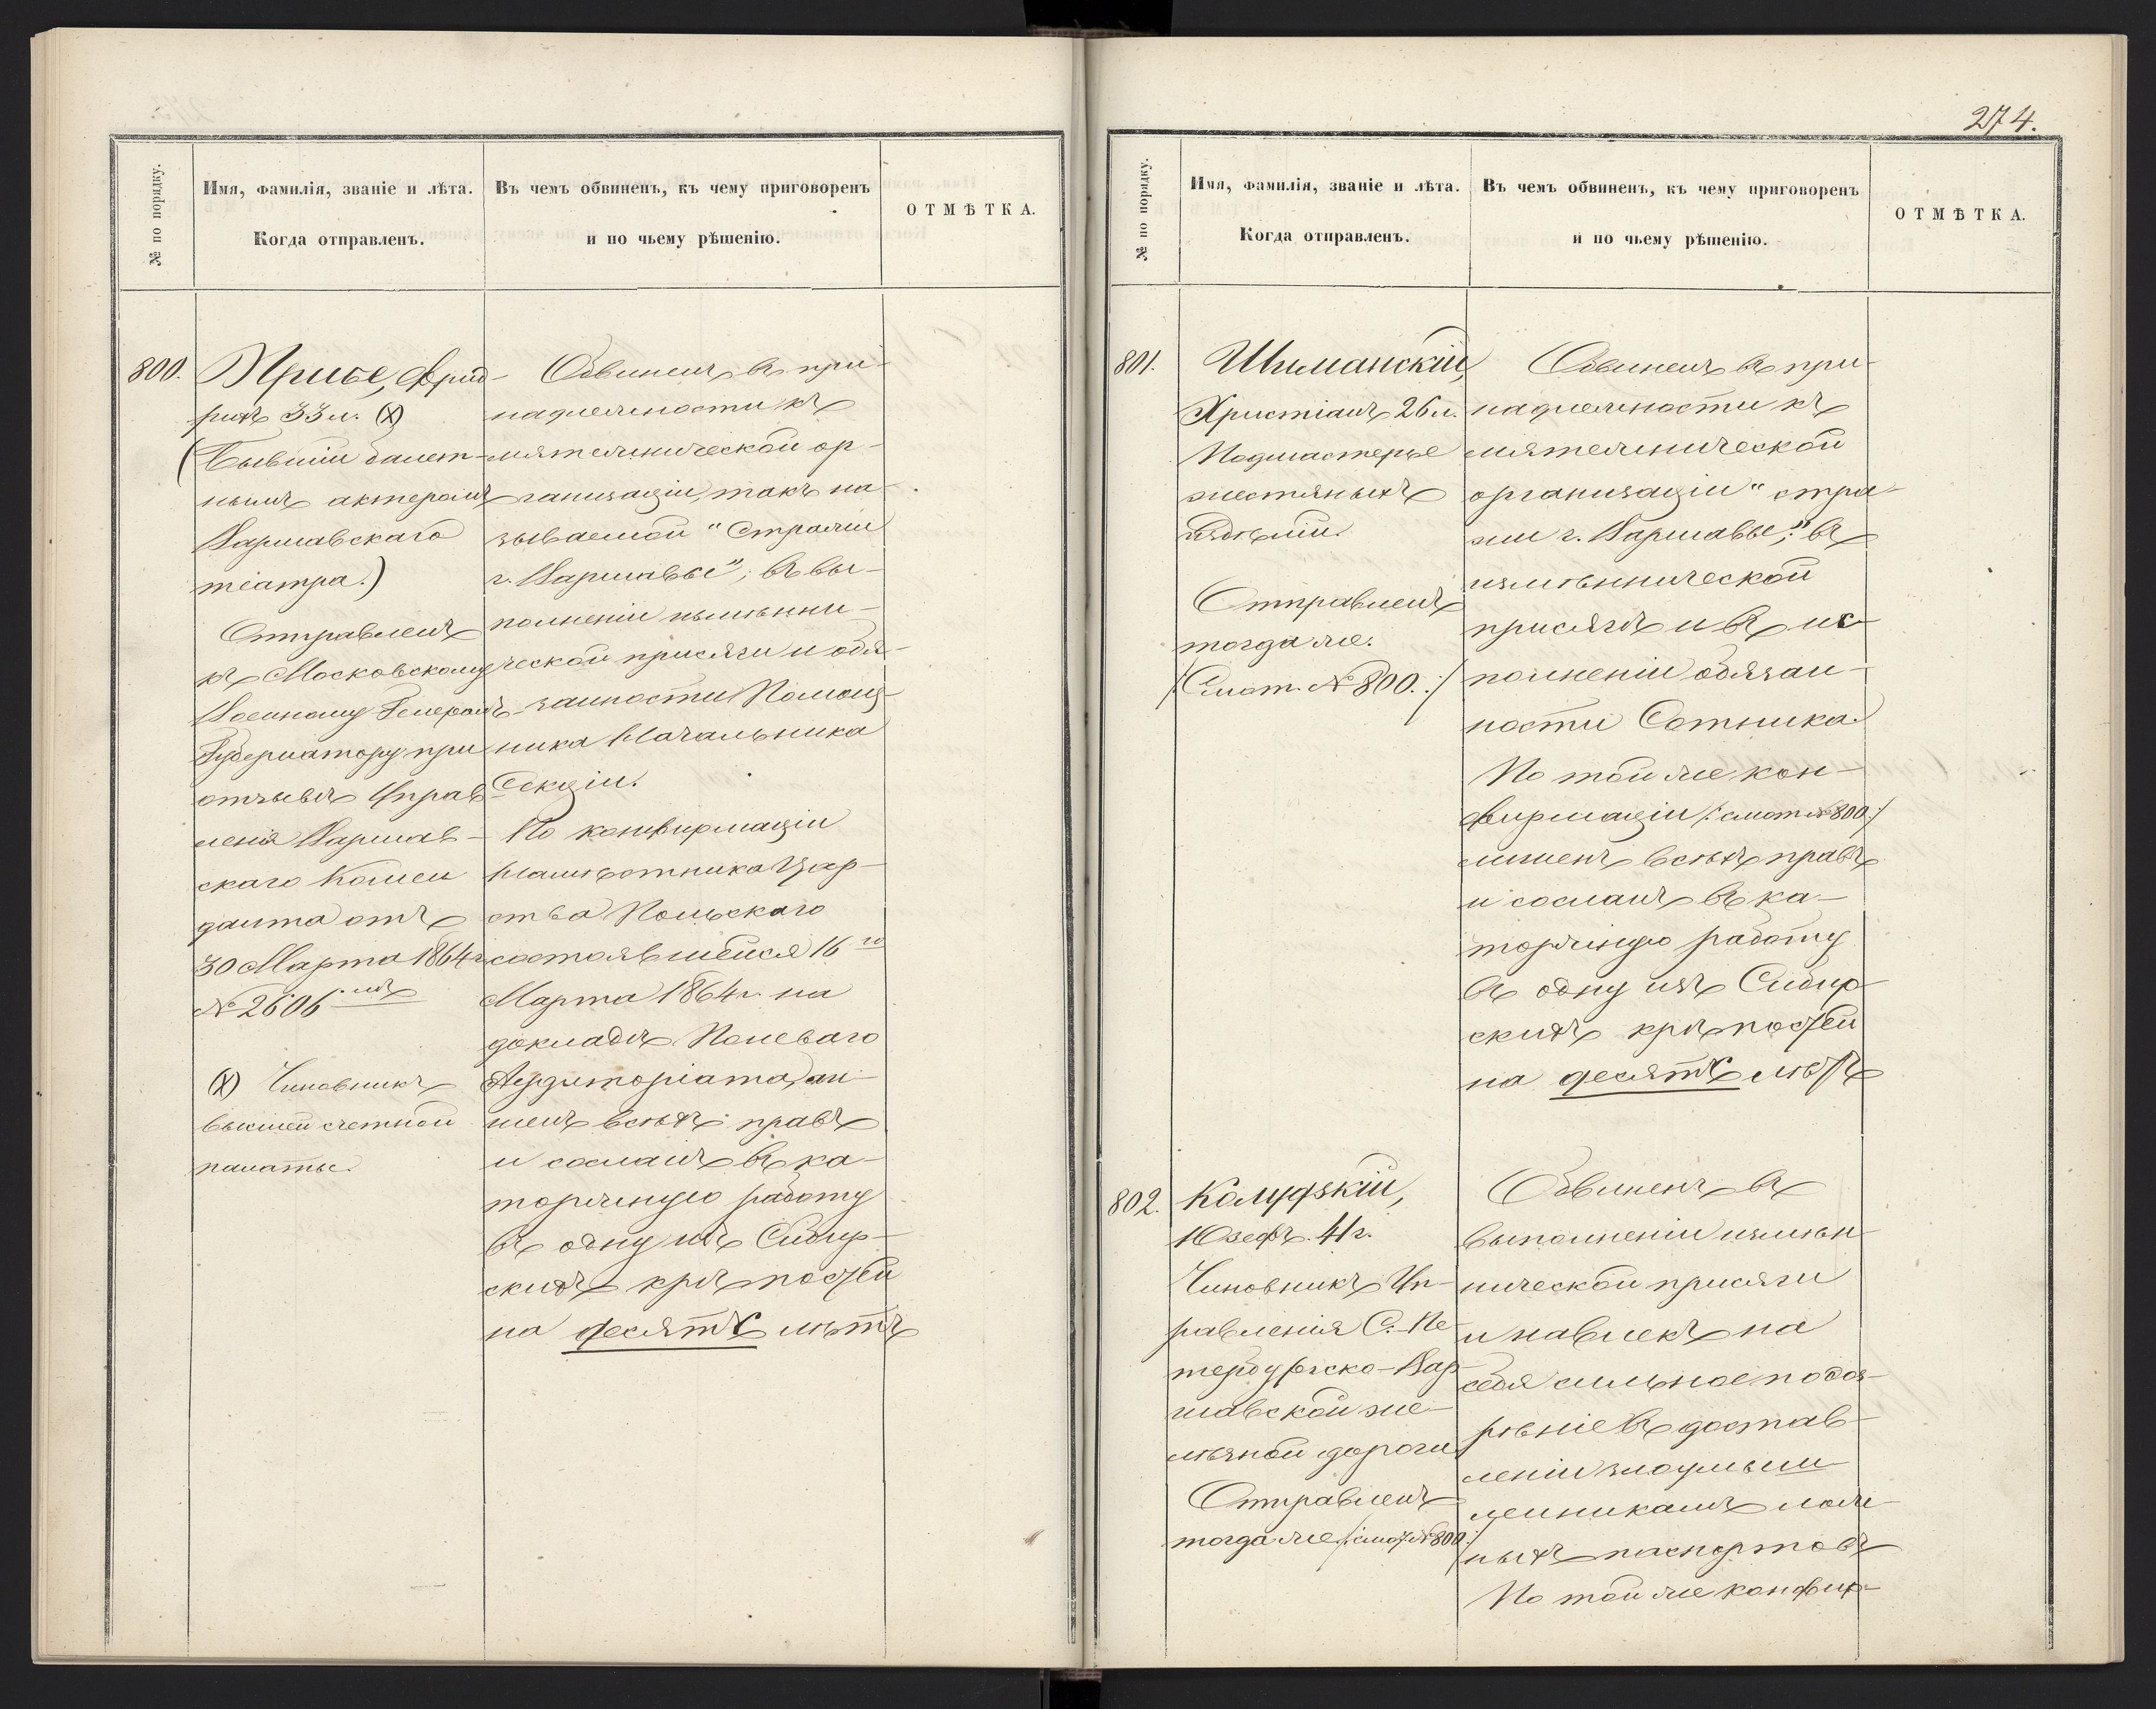 274.
№ по порядку.
Имя, фамилія, званіе и лѣта.
Когда отправленъ.
Въ чемъ обвиненъ, къ чему приговоренъ
и по чьему рѣшенію.
ОТМѢТКА.
800.
Фрид-
рихъ 33 л. (X)
(Бывшій балет-
нымъ актеромъ
Варшавскаго
театра.)
Отправленъ
къ Московскому
Военному Генералъ
Губернатору при
отзывѣ Управ
ленія Варшав-
скаго Комен
данта отъ
30 Марта 1864 г.
№ 2606
(X) Чиновникъ
высшей счетной
палаты.
Обвиненъ въ при-
надлежности къ
мятежнической ор-
ганизаціи, такъ на
зываемой "Стражи
г. Варшавы", въ вы-
полненіи измѣнни-
ческой присяги и обя-
занности Помощ-
ника Начальника
Секціи.
По конфирмаціи
Намѣстника Цар-
ства Польскаго
состоявшейся 16го
Марта 1864 г. на
докладѣ Полеваго
Аудиторіата, ли-
шенъ всѣхъ правъ
и сосланъ въ ка-
торжную работу
въ одну изъ Сибир-
скихъ крѣпостей
на десять лѣтъ
№ по порядку.
Имя, фамилія, званіе и лѣта.
Когда отправленъ.
Въ чемъ обвиненъ, къ чему приговоренъ
и по чьему рѣшенію.
ОТМѢТКА.
801.
Шиманскій,
Христіанъ 26 л.
Подмастерье
жестяныхъ
издѣлій.
Отправленъ
тогда же.
/:Смот. № 800.:/
Обвиненъ въ при-
надлежности къ
мятежнической
организаціи "стра-
жи г. Варшавы;" въ
измѣннической
присягѣ и въ ис-
полненіи обязан-
ности Сотника.
По той же кон-
фирмаціи /:смот. № 800:/
лишенъ всѣхъ правъ
и сосланъ въ ка-
торжную работу
въ одну изъ Сибир
скихъ крѣпостей
на десять лѣтъ
802.
Колудзкій,
Юзефъ. 41 г.
Чиновникъ Уп-
равленія С.-Пе-
тербургско-Вар
шавской же-
лѣзной дороги
Отправленъ
тогда же /:смот № 800:/
Обвиненъ въ
выполненіи измѣн
нической присяги
и навлекъ на
себя сильное подоз-
рѣніе въ достав-
леніи злоумыш
ленникамъ лож
ныхъ паспортовъ
По той же конфир-